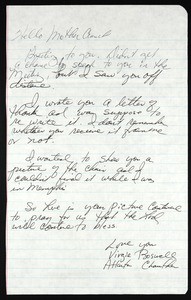 Hello Mother Carol
Greeting to you, I didn't get
a chance to speak to you in the
Meeting but I saw you off
distance.
I wrote you a letter of
thank and way support to
re write it. I don't remember
whether you receive it from me
or not.
I wanted to show you a
picture of the chair and I
couldn't find it while I was
in Memphis
So here is your picture Continue
to pray for us that the God
will continue to bless
Love you
Virgie Boswell
Atlanta